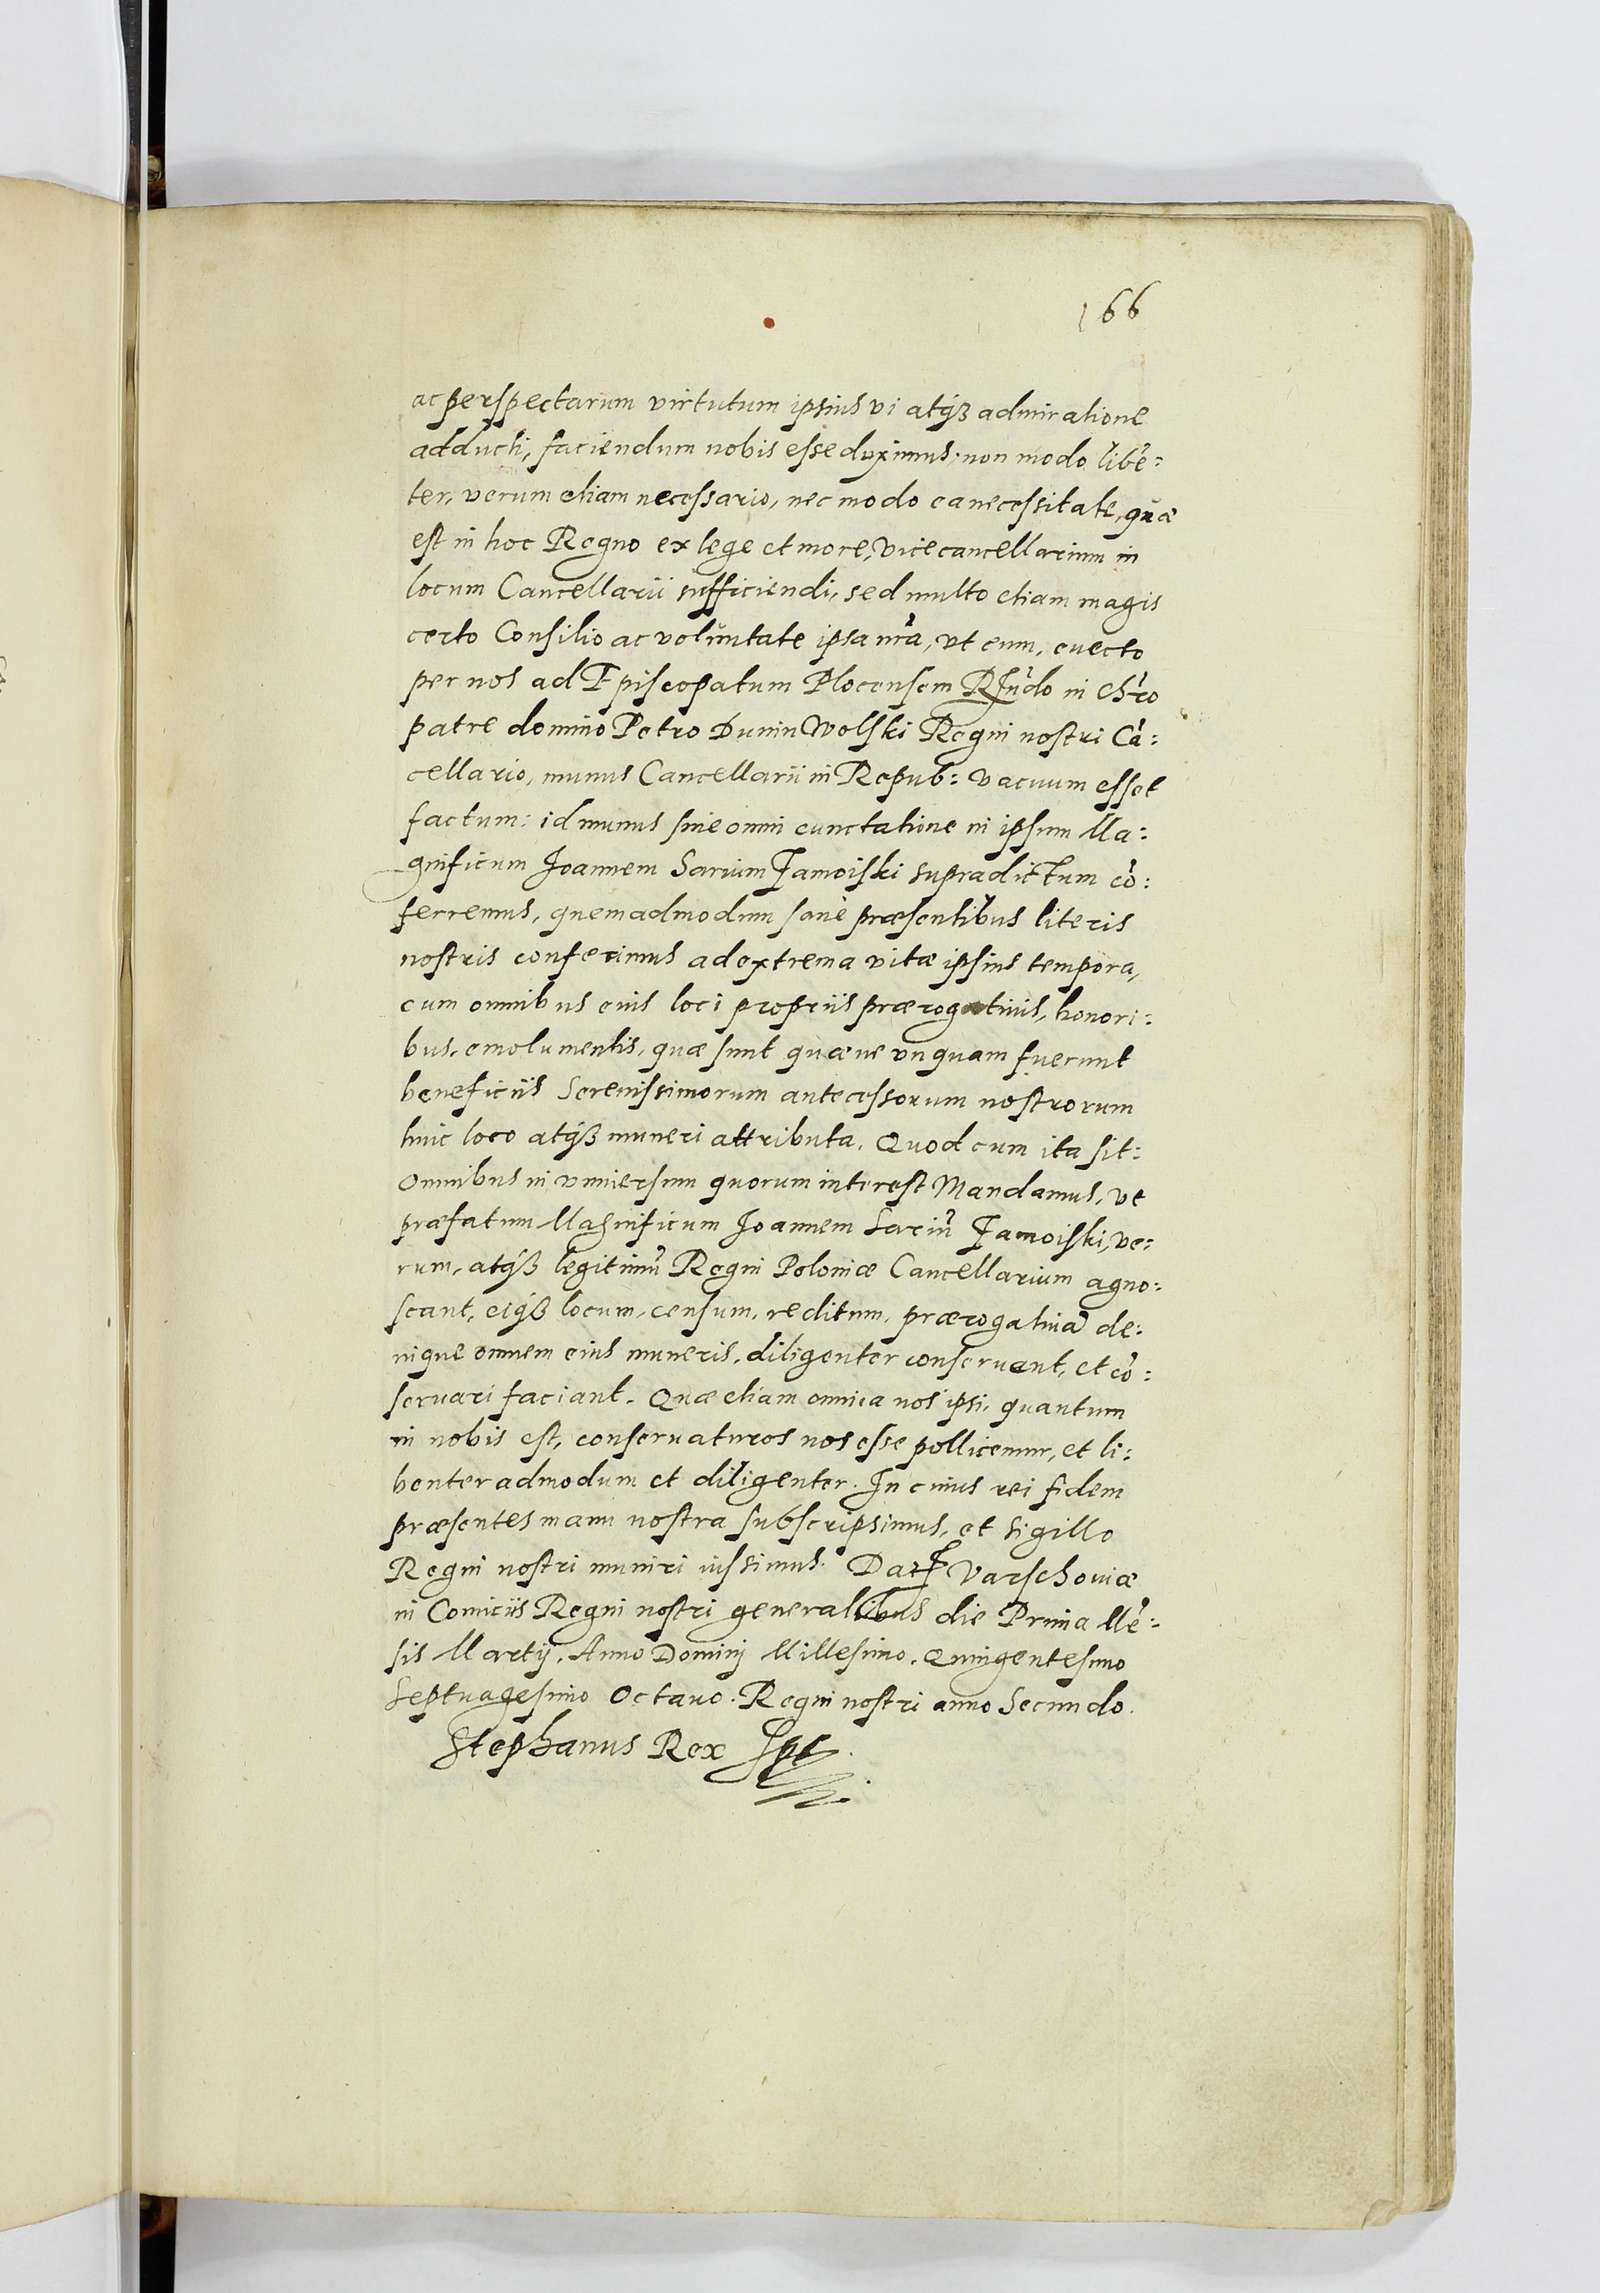 166
ac perspectarum virtutum ipsius vi atq₃ admiratione
adducti, faciendum nobis esse duximus. non modo libē=
ter, verum etiam necessario, nec modo ea necessitate, quæ
est in hoc Regno ex lege et more, vicecancellarium in
locum Cancellarii sufficiendi, sed multo etiam magis
certo Consilio ac voluntate ipsa nr̄a, vt cum, euecto
per nos ad Episcopatum Plocensem Rn̄do in chr̄o
patre domino Petro Dunin Wolski Regni nostri Cā=
cellario, munus Cancellarii in Repub: vacuum esset
factum: id munus sine omni cunctatione in ipsum Ma=
gnificum Joannem Sarium Zamoiski supradictum cō=
ferremus, quemadmodum sanè præsentibus literis
nostris conferimus ad extrema vitæ ipsius tempora,
cum omnibus eius loci propriis prærogatiuis, honori=
bus, emolumentis, quæ sunt quæue vnquam fuerunt
beneficiis Serenissimorum antecessorum nostrorum
huic loco atq₃ muneri attributa. Quod cum ita sit:
Omnibus in vniuersum quorum interest Mandamus, vt
præfatum Magnificum Joannem Sariū Zamoiski, ve=
rum, atq₃ legitimū Regni Poloniæ Cancellarium agno=
scant, eiq₃ locum, censum, reditum, prærogatiuā de=
nique omnem eius muneris, diligenter conseruent, et cō=
seruari faciant. Quæ etiam omnia nos ipsi, quantum
in nobis est, conseruaturos nos esse pollicemur, et li=
benter admodum et diligenter. In cuius rei fidem
præsentes manu nostra subscripsimus, et sigillo
Regni nostri muniri iussimus. Dat Varschouiæ
in Comiciis Regni nostri generalibus die Prima Mē=
sis Martij, Anno Dominj Millesimo, Quingentesimo
Septuagesimo Octauo. Regni nostri anno Secundo.
Stephanus Rex